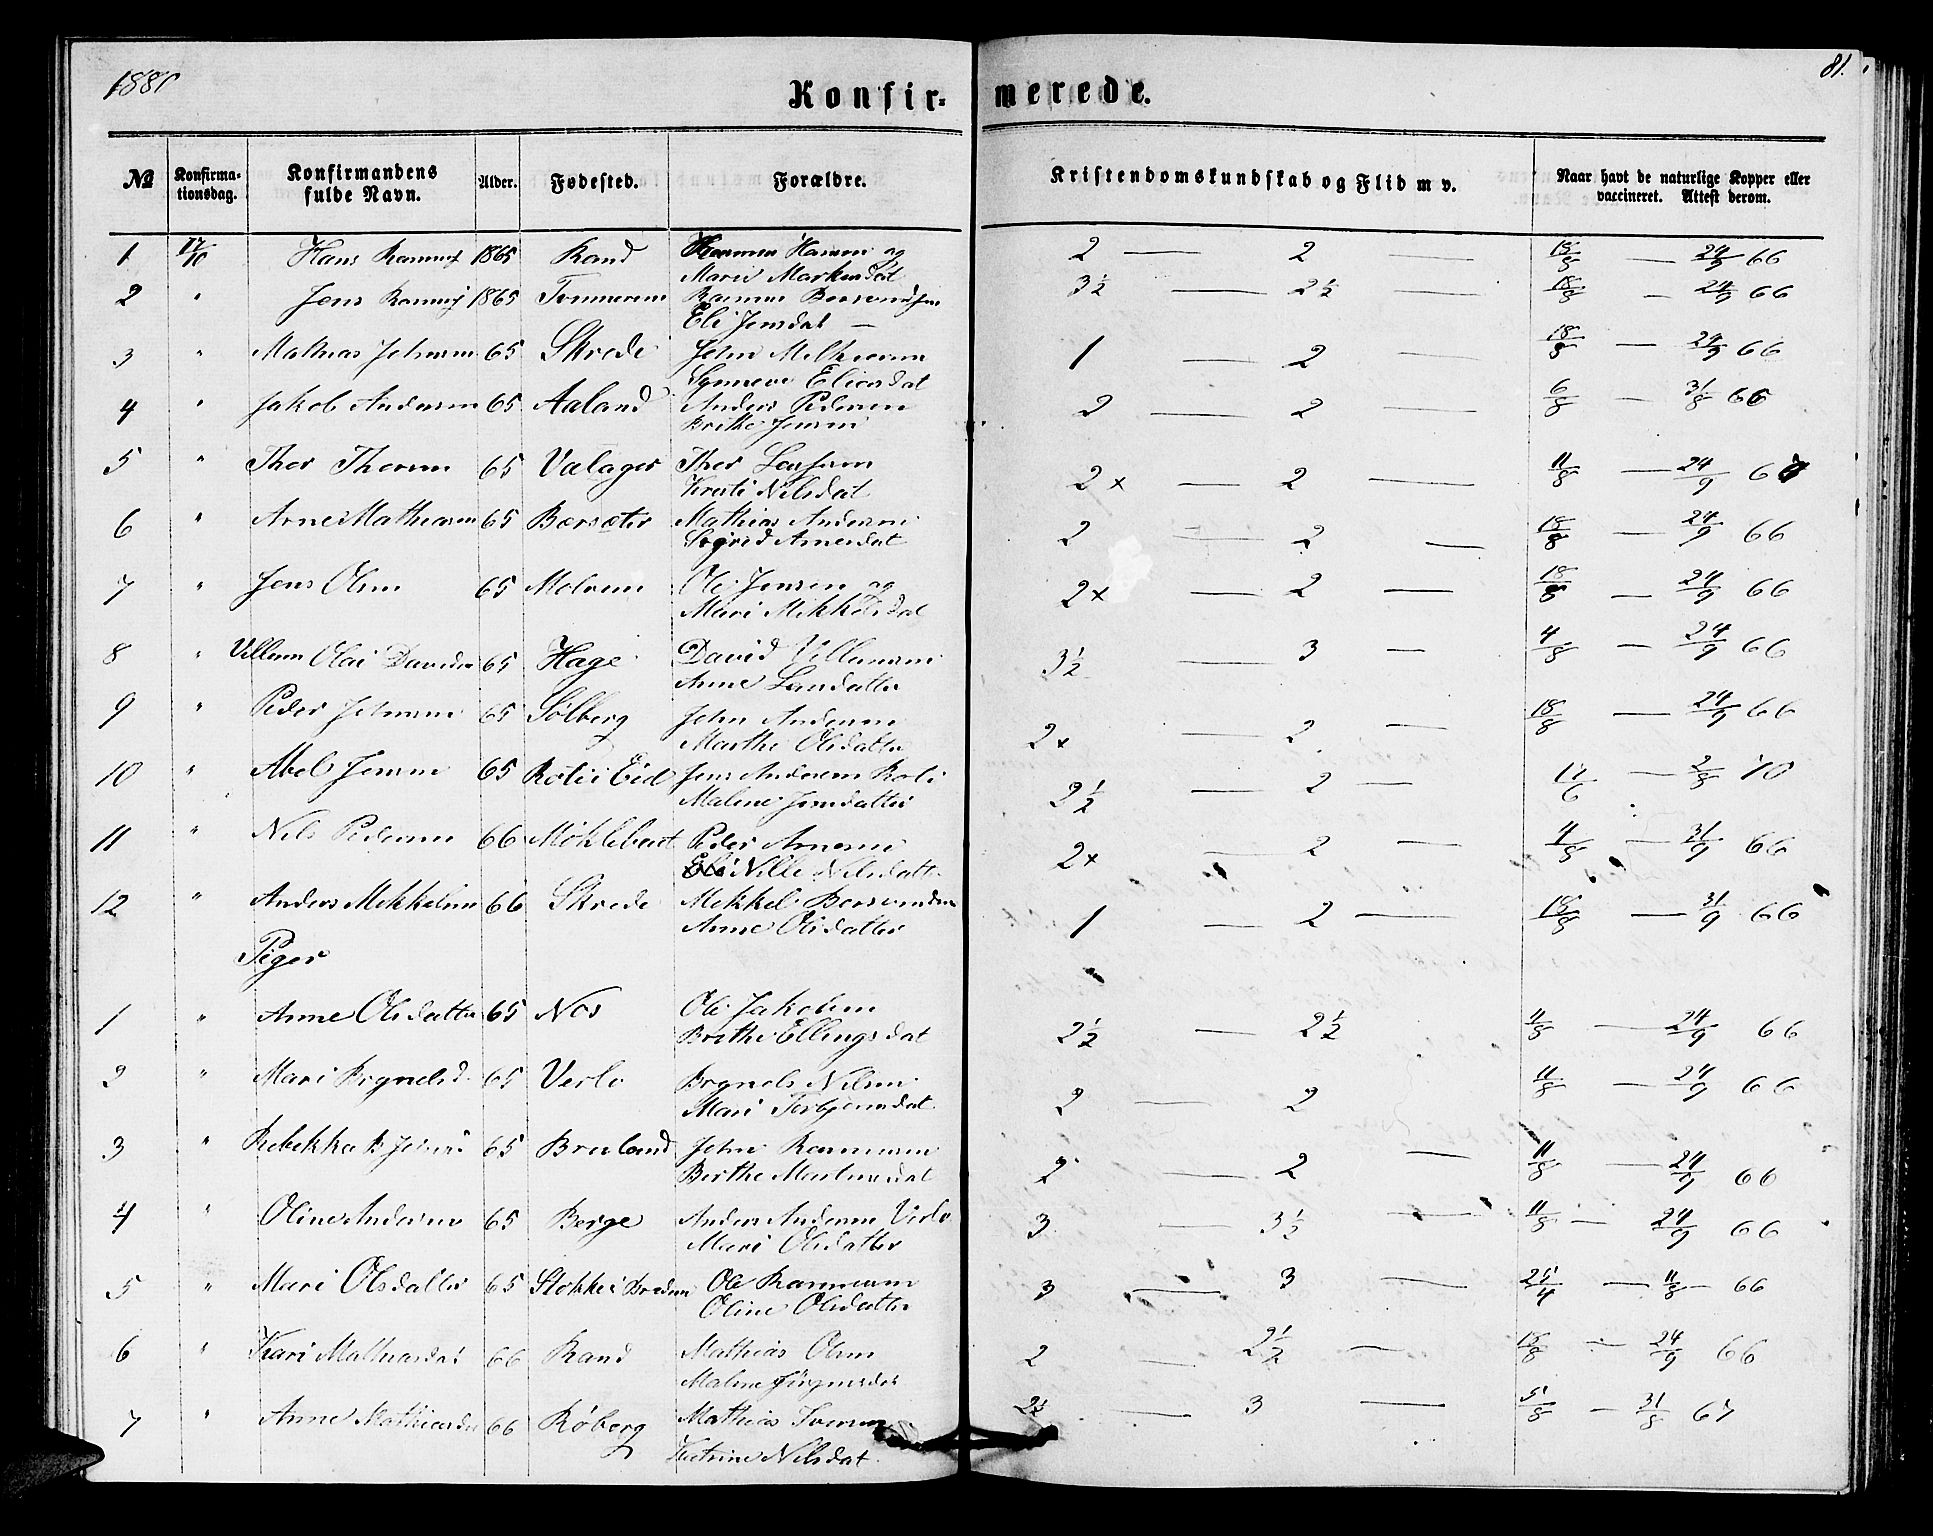 1880
81.
Konfir- merede.
No Konfirmationsdag. Konfirmandens fulde Navn. Alder. Fødested. Forældre. Kristendomskundskab og Flid m v. Naar havt de naturlige Kopper eller vaccineret. Attest derom.
1 17/10 Hans 1865 Rand Hansen og 2 — 2 — 18/8 — 24/9 66
Marie
2 " Jens 1865 3½ — 2½ — 18/8 — 24/9 66
Eli Jensdat —
3 " Mathias Johnsen 65 Skrede John 1 — 2 — 18/8 — 24/9 66
Synneve Eliasdat
4 " Jakob Andersen 65 Aaland Anders Pedersen 2 — 2 — 6/8 — 31/8 66
Brithe Jensen
5 " Thor Thorsen 65 Valager Thor 2 x — 2 — 11/8 — 24/9 66
Nilsdat
6 " Arne Mathiasen 65 Bersæter Mathias Andersen 2 — 2 — 18/8 — 24/9 66
Sigrid Arnesdat
7 " Jens Olsen 65 Ole Jensen og 2x — 2 — 18/8 — 24/9 66
Mari Mikkelsdat
8 " Villum Olai Davidsen 65 Hage David Villumsen 3½ — 3 — 4/8 — 24/9 66
Anne Larsdatter
9 " Peder Johnsen 65 Sølberg John Andersen 2x — 2 — 18/8 — 24/9 66
Marthe Olsdatter
10 " Abel Jensen 65 Roti i Eid Jens Andersen Roti 2½ — 2 — 17/6 — 2/8 70
Malene Jensdatter
11 " Nils Pedersen 66 Møklebust Peder Arnesen 2x — 2 — 4/8 — 31/9 66
Eli Nille Nilsdatter
12 " Anders Mikkelsen 66 Skrede Mikkel 1 — 2 — 18/8 — 31/9 66
Anne Olsdatter
Piger
1 " Anne Olsdatter 65 Nos Ole Jakobsen 2½ — 2½ 11/8 — 24/9 66
Brithe Ellingsdat
2 " Mari 65 Verlo Nilsen 2 — 2 11/8 — 24/9 66
Mari
3 " Rebekka 65 John Rasmusen 2 — 2 — 11/8 — 24/9 66
Berthe
4 " Oline Andersen 65 Berge Anders Andersen Verlo 3 — 3½ — 11/8 — 24/9 66
Mari Olsdatter
5 " Mari Olsdatter 65 Stokke i Ole Rasmusen 3 — 3 — 21/4 — 11/8 — 66
Oline Olsdatter
6 " Kari Mathiasdat 66 Rand Mathias Olsen 2 — 2½ — 18/8 — 24/9 66
Malene
7 " Anne Mathiasdat 66 Røberg Mathias Iversen 2½ — 3 — 5/8 — 31/8 67
Katrine Nilsdat